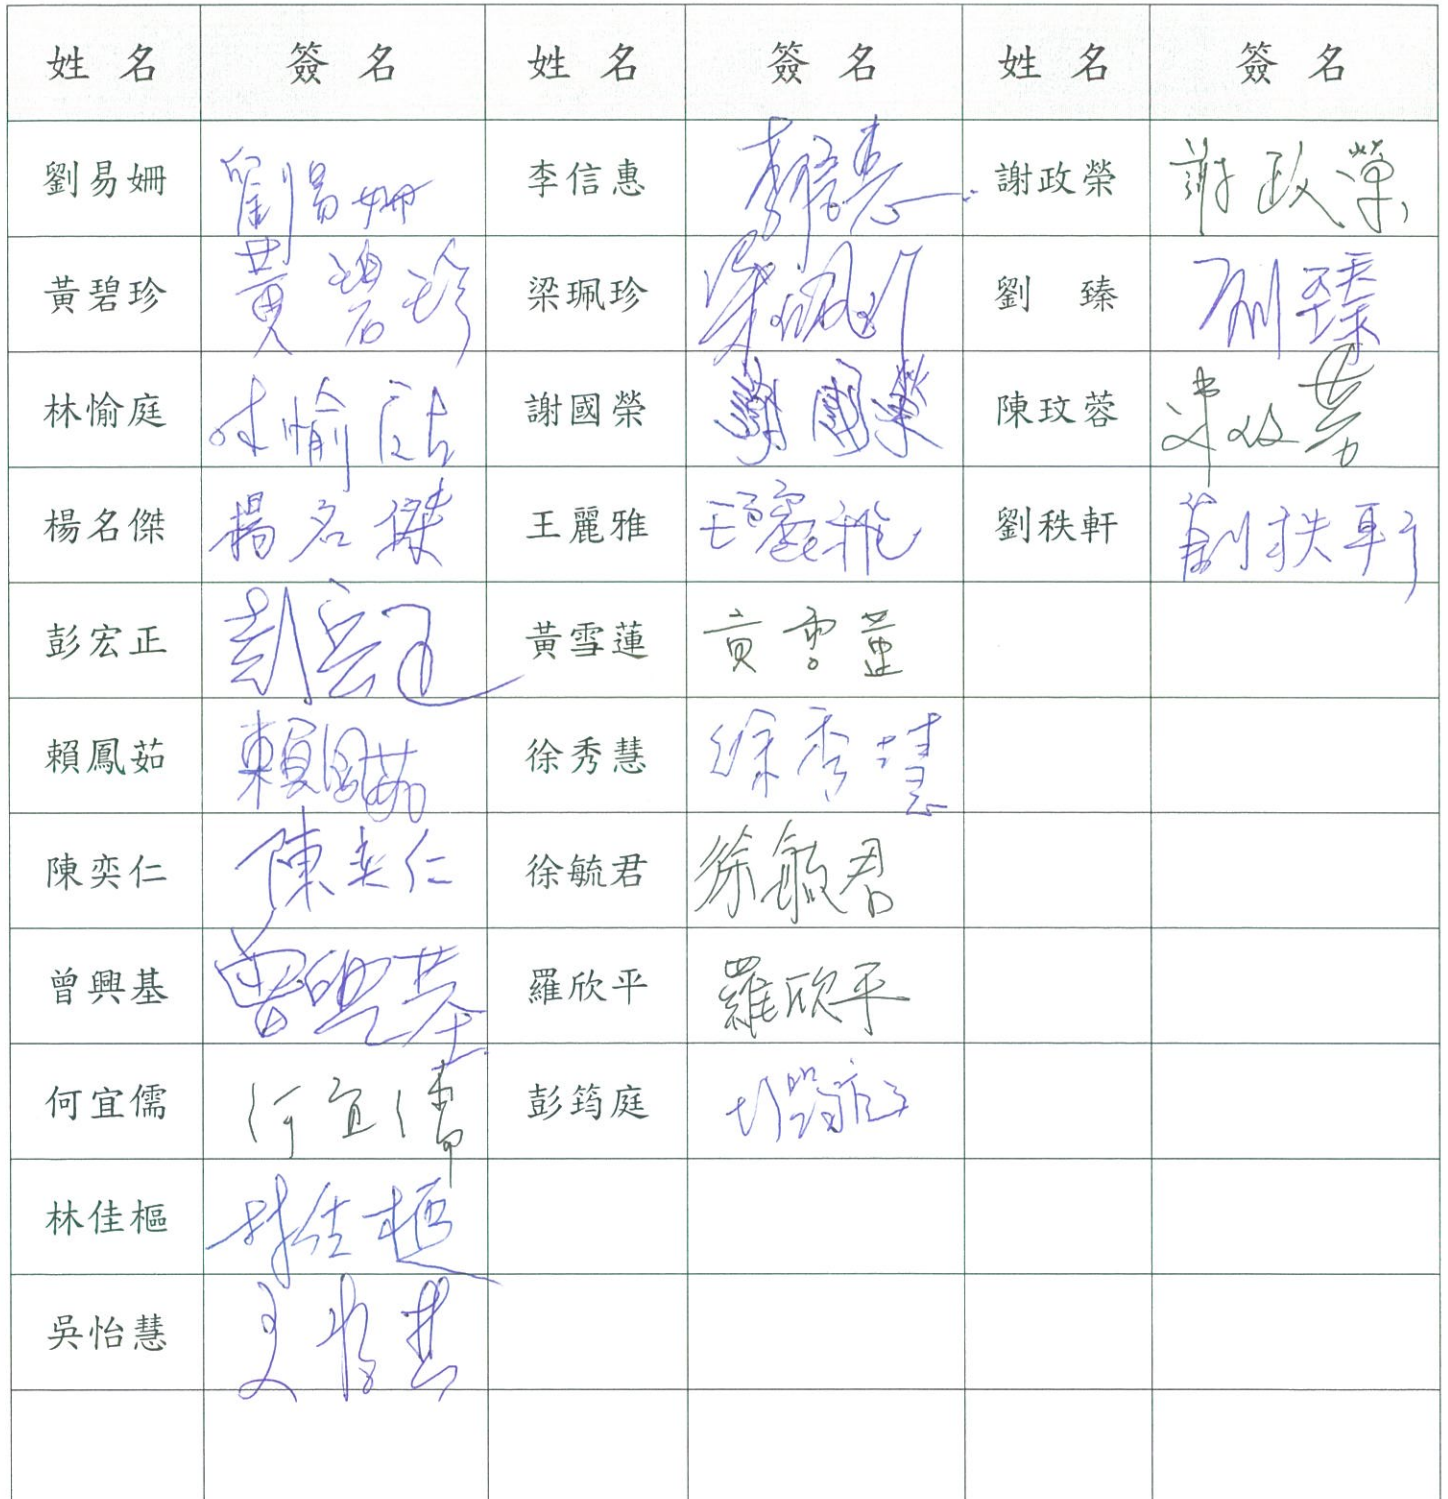 姓 名 簽 名 姓 名 簽 名 姓 名 簽 名
劉易姍 劉易姍 李信惠 李信惠 謝政榮 謝政榮
黃碧珍 黃碧珍 梁珮珍 梁珮 劉 臻 劉臻
林愉庭 林愉庭 謝國榮 謝國榮 陳玟蓉 陳玟蓉
楊名傑 楊名傑 王麗雅 王麗雅 劉秩軒 劉秩軒
彭宏正 彭宏正 黃雪蓮 黃雪蓮
賴鳳茹 賴鳳茹 徐秀慧 徐秀慧
陳奕仁 陳奕仁 徐毓君 徐毓君
曾興基 曾興基 羅欣平 羅欣平
何宜儒 何宜儒 彭筠庭 彭筠庭
林佳樞 林佳樞
吳怡慧 吳怡慧